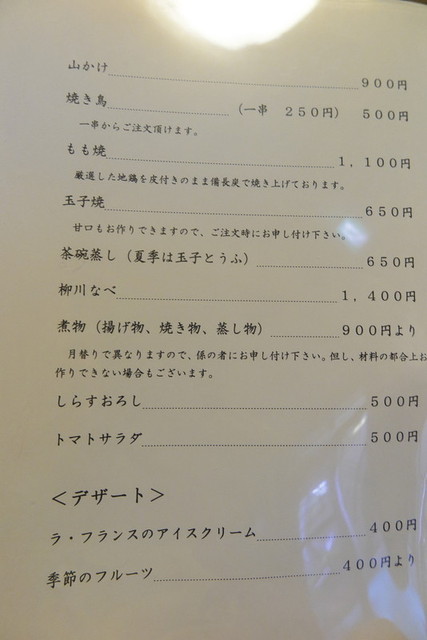 山かけ 900円
焼き鳥 (一串 250円) 500円
一串からご注文頂けます。
もも焼 1,100円
厳選した地鶏を皮付きのまま備長炭で焼き上げております。
玉子焼 650円
甘口もお作りできますので、ご注文時にお申し付け下さい。
茶碗蒸し(夏季は玉子とうふ) 650円
柳川なべ 1,400円
煮物(揚げ物、焼き物、蒸し物) 900円より
月替りで異なりますので、係の者にお申し付け下さい。但し、材料の都合上お
作りできない場合もございます。
しらすおろし 500円
トマトサラダ 500円
<デザート>
ラ・フランスのアイスクリーム 400円
季節のフルーツ 400円より